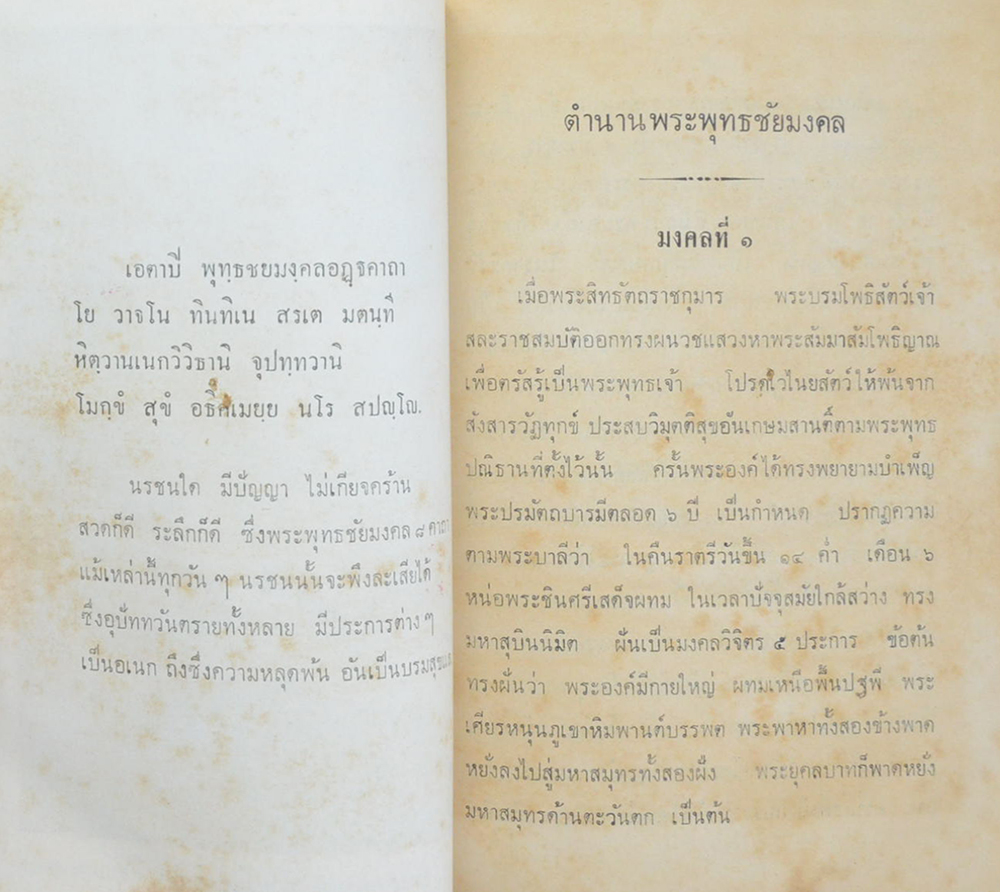 เอตาปิ พุทฺธชยมงฺคลอฏฺฐคาถา
โย วาจโน ทินทิเน สรเต มตนฺที
หิตฺวานเนกวิวิธานิ จุปทฺทวานิ
โมกฺขํ สุขํ อธิคเมยฺย นโร สปญฺโญ.
นรชนใด มีปัญญา ไม่เกียจคร้าน
สวดก็ดี ระลึกก็ดี ซึ่งพระพุทธชัยมงคล ๘ คาถา
แม้เหล่านี้ทุกวัน ๆ นรชนนั้นจะพึงละเสียได้
ซึ่งอุปัททวันตรายทั้งหลาย มีประการต่าง ๆ
เป็นอเนก ถึงซึ่งความหลุดพ้น อันเป็นบรมสุข
ตำนานพระพุทธชัยมงคล
มงคลที่ ๑
เมื่อพระสิทธัตถราชกุมาร พระบรมโพธิสัตว์เจ้า
สละราชสมบัติออกทรงผนวชแสวงหาพระสัมมาสัมโพธิญาณ
เพื่อตรัสรู้เป็นพระพุทธเจ้า โปรดเวไนยสัตว์ให้พ้นจาก
สังสารวัฏทุกข์ ประสบวิมุตติสุขอันเกษมสานติ์ตามพระพุทธ
ปณิธานที่ตั้งไว้นั้น ครั้นพระองค์ได้ทรงพยายามบำเพ็ญ
พระปรมัตถบารมีตลอด ๖ ปี เป็นกำหนด ปรากฏความ
ตามพระบาลีว่า ในคืนราตรีวันขึ้น ๑๔ ค่ำ เดือน ๖
หน่อพระชินศรีเสด็จผทม ในเวลาปัจจุสมัยใกล้สว่าง ทรง
มหาสุบินนิมิต ฝันเป็นมงคลวิจิตร ๕ ประการ ข้อต้น
ทรงฝันว่า พระองค์มีกายใหญ่ ผทมเหนือพื้นปฐพี พระ
เศียรหนุนภูเขาหิมพานต์บรรพต พระพาหาทั้งสองข้างพาด
หยั่งลงไปสู่มหาสมุทรทั้งสองฝั่ง พระยุคลบาทก็พาดหยั่ง
มหาสมุทรด้านตะวันตก เป็นต้น